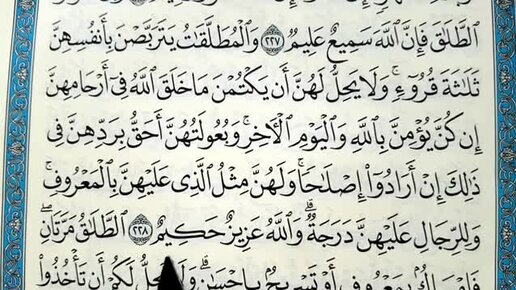 ٱلطَّلَٰقَ فَإِنَّ ٱللَّهَ سَمِيعٌ عَلِيمٌ ٢٢٧ وَٱلْمُطَلَّقَٰتُ يَتَرَبَّصْنَ بِأَنفُسِهِنَّ
ثَلَٰثَةَ قُرُوٓءٍ ۚ وَلَا يَحِلُّ لَهُنَّ أَن يَكْتُمْنَ مَا خَلَقَ ٱللَّهُ فِىٓ أَرْحَامِهِنَّ
إِن كُنَّ يُؤْمِنَّ بِٱللَّهِ وَٱلْيَوْمِ ٱلْءَاخِرِ ۚ وَبُعُولَتُهُنَّ أَحَقُّ بِرَدِّهِنَّ فِى
ذَٰلِكَ إِنْ أَرَادُوٓا۟ إِصْلَٰحًا ۚ وَلَهُنَّ مِثْلُ ٱلَّذِى عَلَيْهِنَّ بِٱلْمَعْرُوفِ ۚ
وَلِلرِّجَالِ عَلَيْهِنَّ دَرَجَةٌ ۗ وَٱللَّهُ عَزِيزٌ حَكِيمٌ ٢٢٨ ٱلطَّلَٰقُ مَرَّتَانِ ۖ
فَإِمْسَاكٌۢ بِمَعْرُوفٍ أَوْ تَسْرِيحٌۢ بِإِحْسَٰنٍ ۗ وَلَا يَحِلُّ لَكُمْ أَن تَأْخُذُوا۟